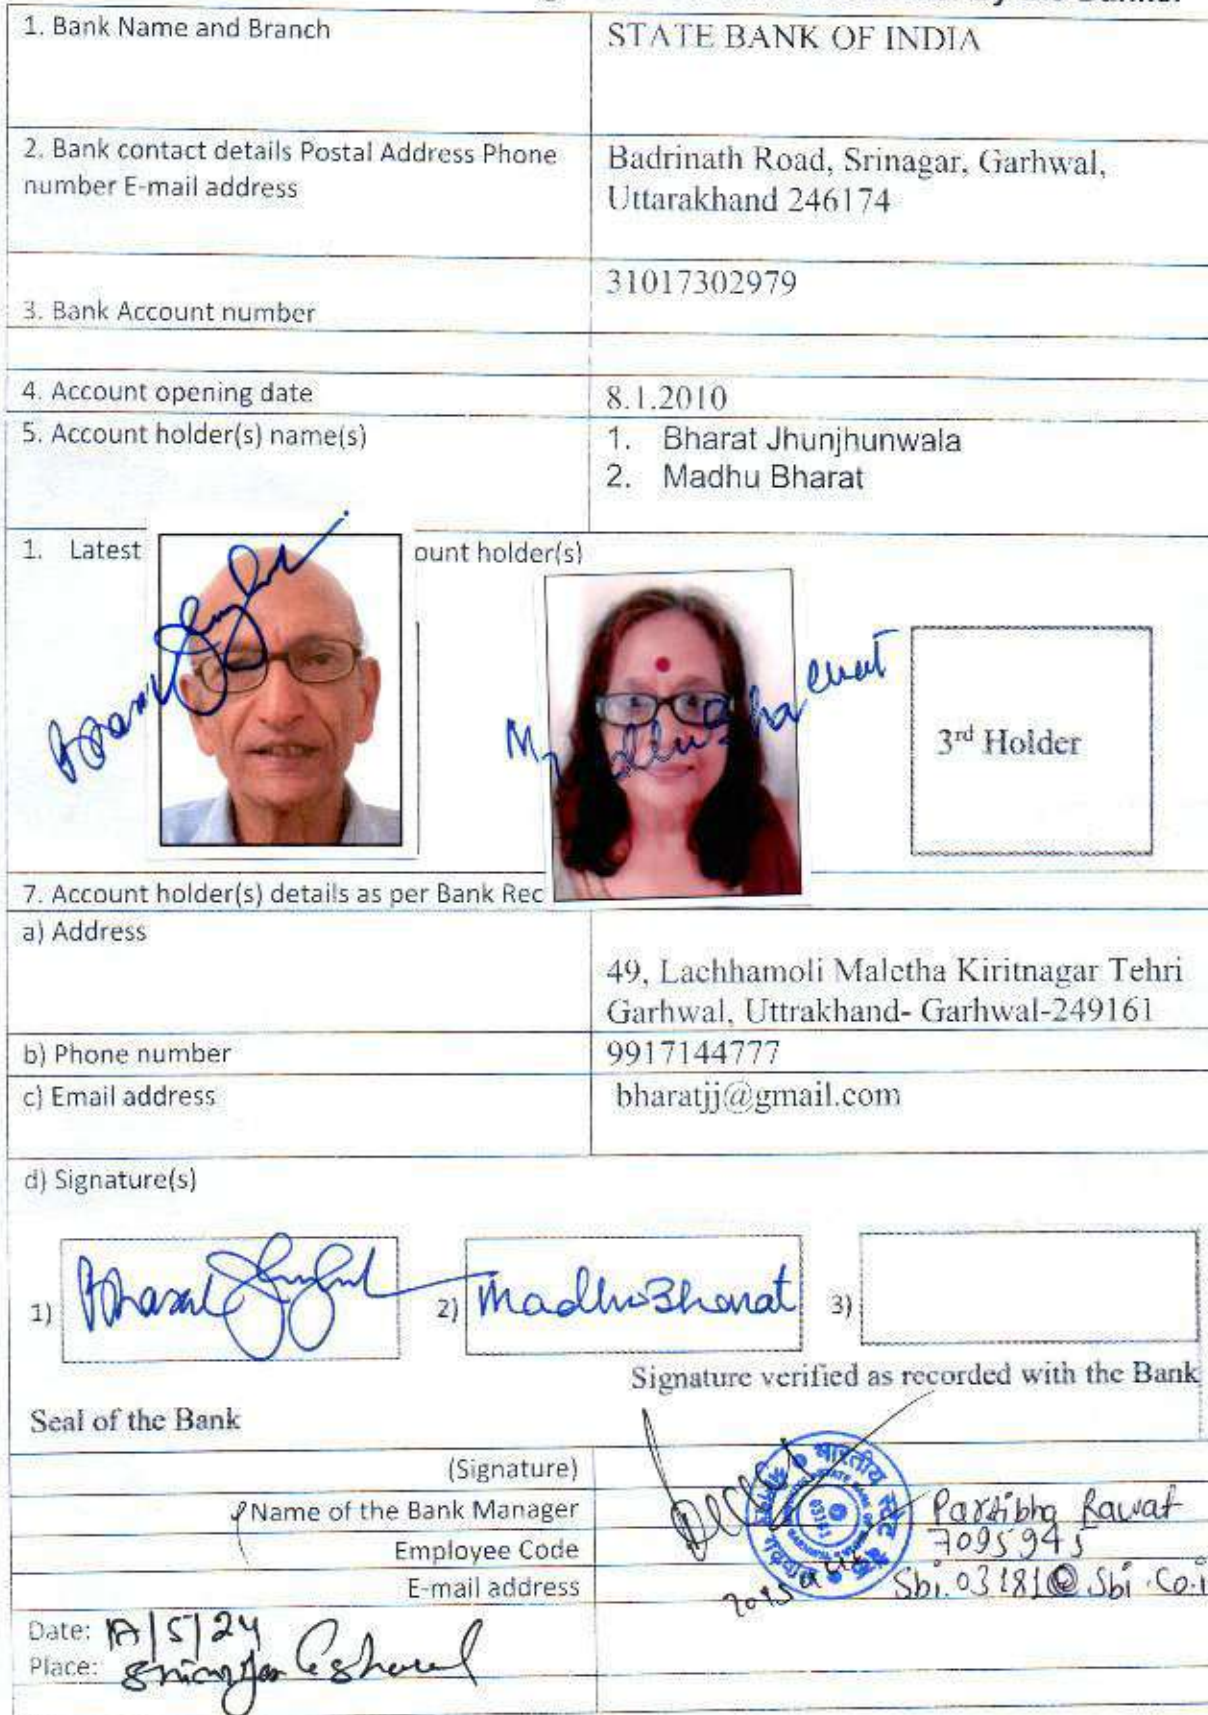 by the Banker
1. Bank Name and Branch
STATE BANK OF INDIA
2. Bank contact details Postal Address Phone
number E-mail address
Badrinath Road, Srinagar, Garhwal,
Uttarakhand 246174
3. Bank Account number
31017302979
4. Account opening date
8.1.2010
5. Account holder(s) name(s)
1. Bharat Jhunjhunwala
2. Madhu Bharat
1. Latest
ount holder(s)
Madhu Bharat
3rd Holder
7. Account holder(s) details as per Bank Rec
a) Address
49, Lachhamoli Maletha Kiritnagar Tehri
Garhwal, Uttrakhand- Garhwal-249161
b) Phone number
9917144777
c) Email address
bharatjj@gmail.com
d) Signature(s)
1)
Bharat
2)
Madhu Bharat
3)
Signature verified as recorded with the Bank
Seal of the Bank
(Signature)
Name of the Bank Manager
Rawat
Employee Code
7095945
E-mail address
Sbi.03181@Sbi.Co.i
भारतीय स्टेट बैंक
03181
Date: /5/24
Place: